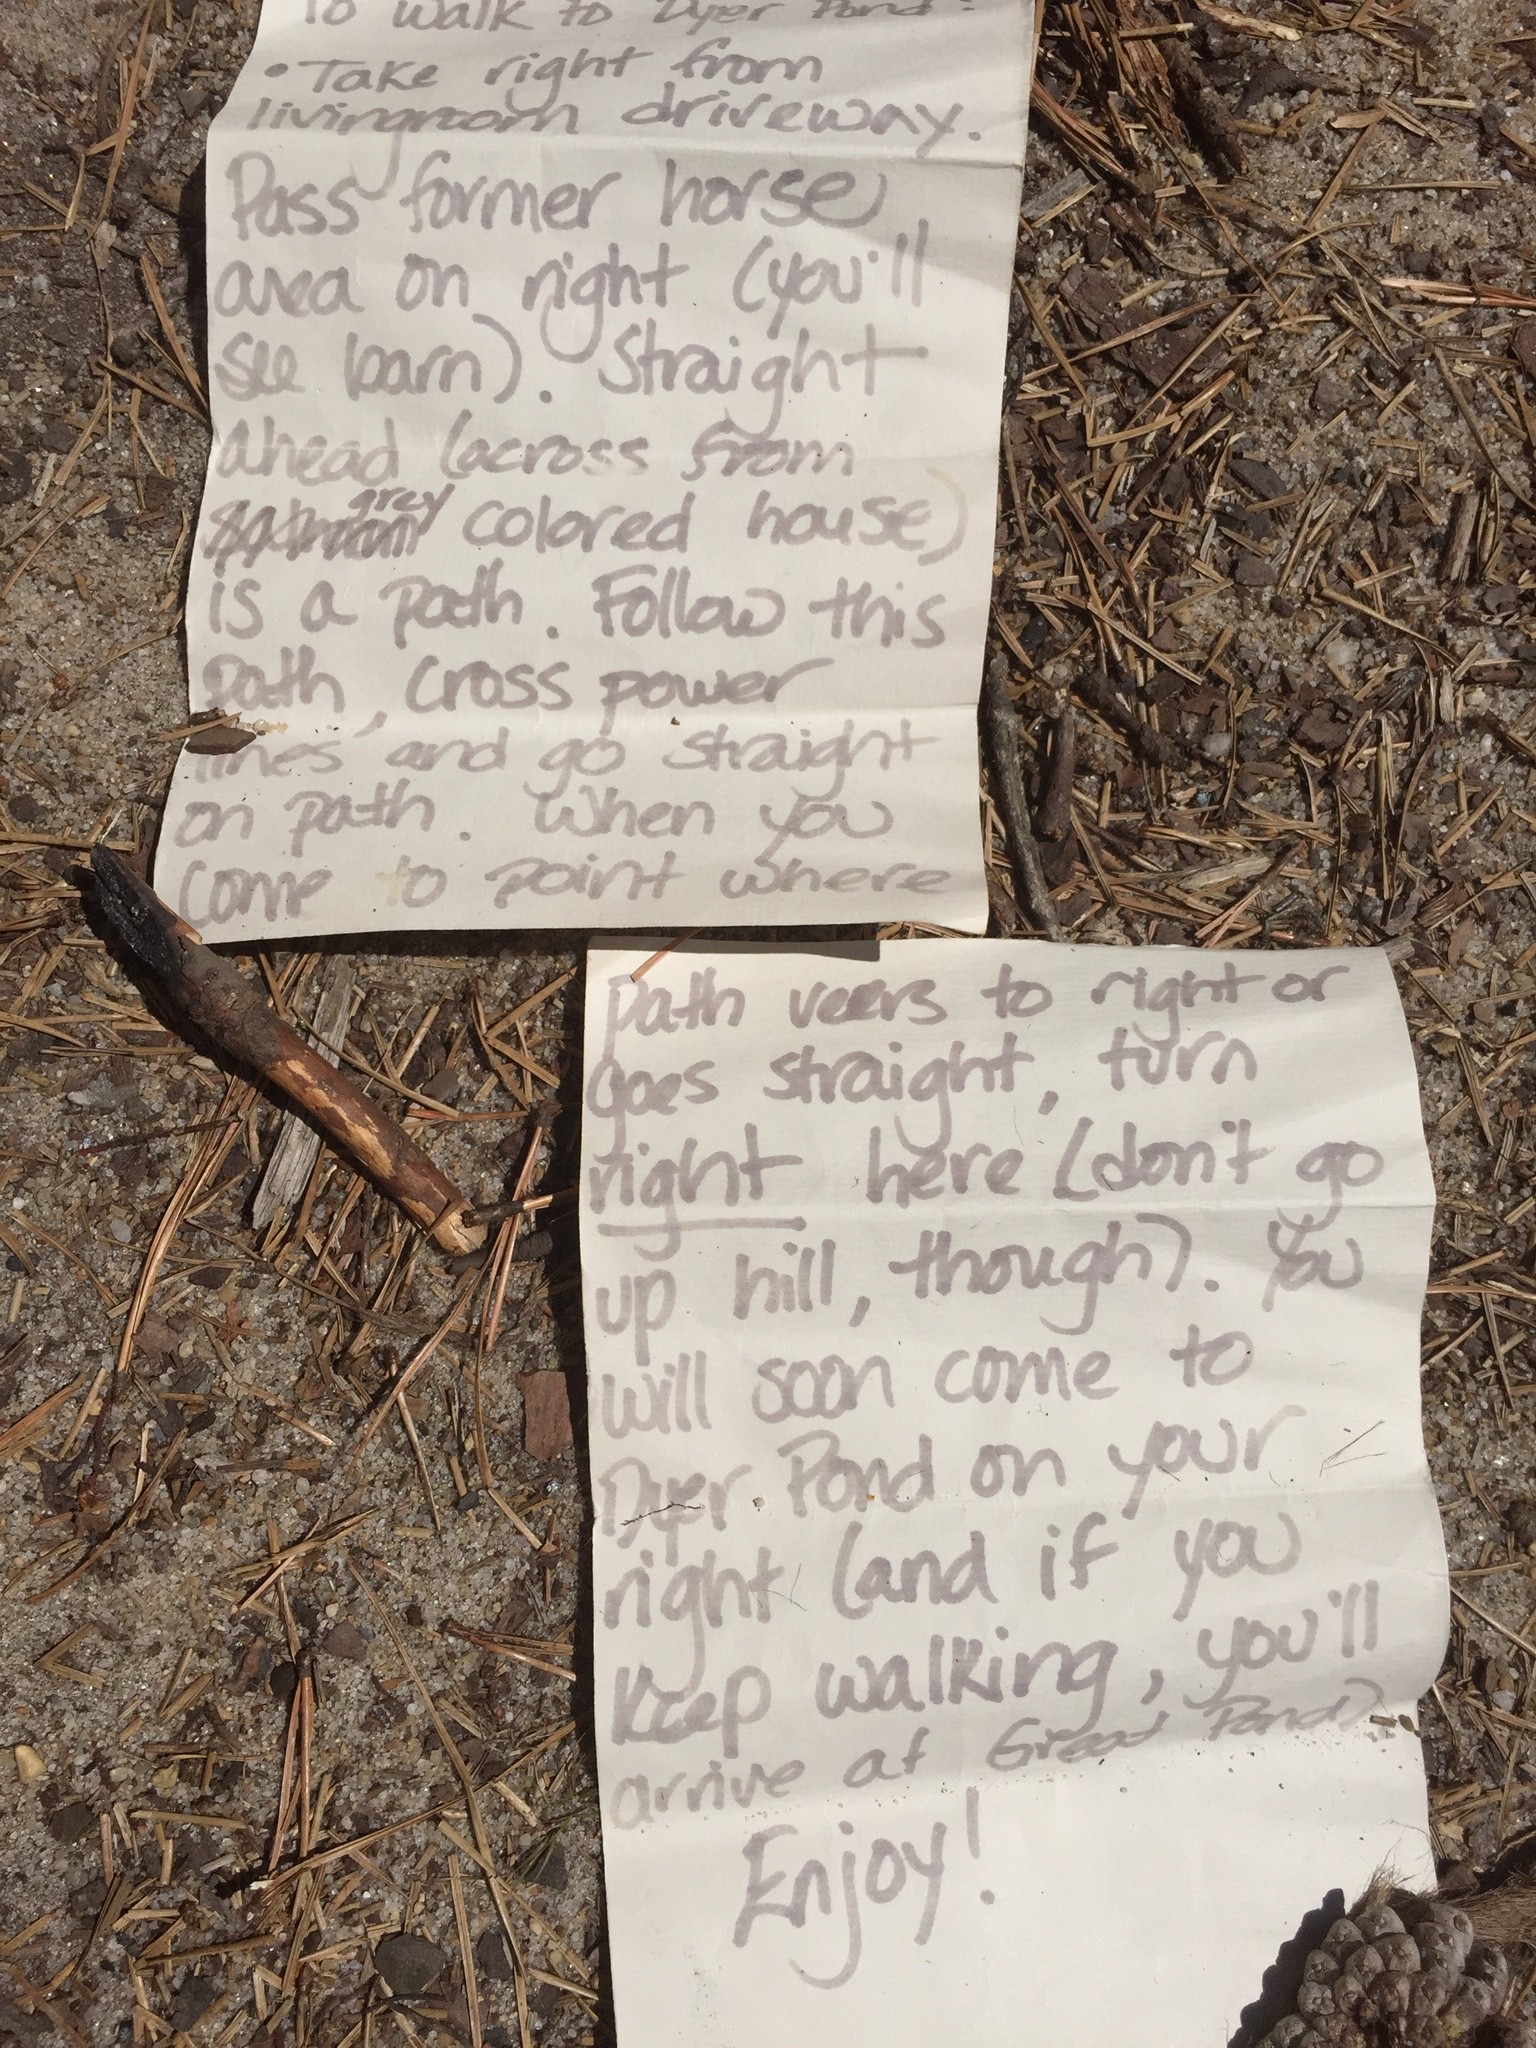 To walk to Dyer Pond:
• Take right from
livingroom driveway.
Pass former horse
area on right (you'll
see barn). Straight
ahead (across from
grey colored house)
is a path. Follow this
path, cross power
lines and go straight
on path. When you
come to point where
path veers to right or
goes straight, turn
right here (don't go
up hill, though). You
will soon come to
Dyer Pond on your
right (and if you
keep walking, you'll
arrive at Great Pond)
Enjoy!